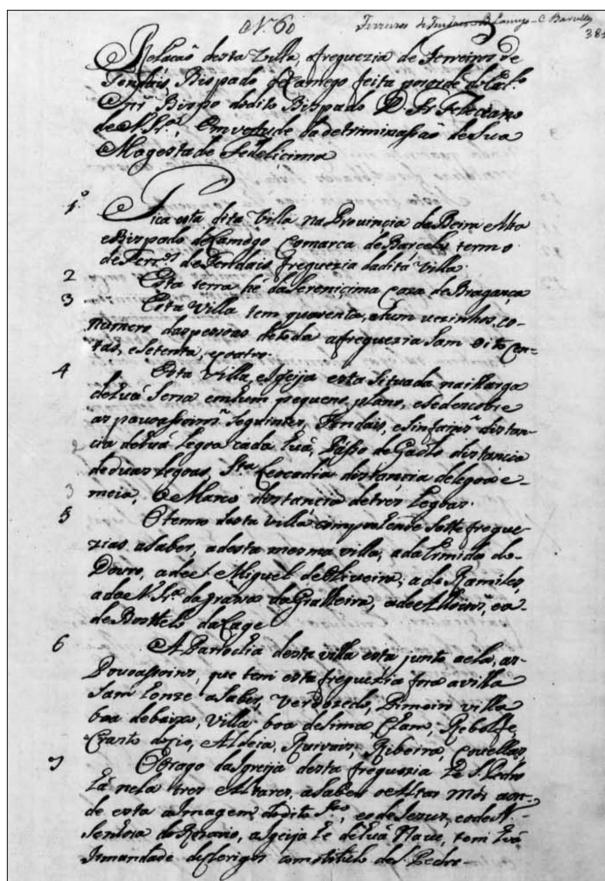 N.º 60
Ferreiros de Tendaes B. Lamego - C. Barcellos
381
Relacaõ desta Villa, e freguezia de Ferreiros de
Tendais, Bispado de Lamego feita por ordem do Ex.mo
Snr̃ Bispo do dito Bispado D. Fr. Feleciano
de N. Sr.ª, Em vertude da detriminassaõ de Sua
Magestade Fedelicima
1º Fica esta dita Villa na Provincia da Beira Alta
e Bispado de Lamego Comarca de Barcelos termo
de Ferr.os de Tendais freguezia da dita Villa
2 Esta terra he da Serenicima Caza de Bragança
3 Esta Villa tem quarenta, e hum vezinhos, e o
numero das pessoas de toda a freguezia sam oito cen-
tas, e setenta, e coatro.
4 Esta Villa, e Igreija esta situada na ilharga
de huã Serra em hum pequeno plano, e se descobre
as povoassoins seguintes, Tendais, e Sinfains distan-
cia de huã legoa cada huã, Passo de Gaiolo distancia
de duas legoas, Sta. Leocadia distancia de legoa e-
meia, e Marco distancia de tres Legoas.
5 O termo desta villa comprehende sette fregue-
zias, a saber, a desta mesma villa, a da Ermida do-
Douro, a de S. Miguel de Oliveira, a de Ramires,
a de N. Sr.ª da Grassa da Gralheira, a de Alhoins, e a
de Bostello da Lage
6 A Parochia desta villa esta junto a ela, as-
Povoassoins, que tem esta freguezia fora a villa
Sam honze a saber, Verdozedo, Pimeiro villa
boa de baixo, Villa boa de sima, Cham, Rebolfe,
Crasto do rio, Aldeia, Ruivais, Ribeira, Covellas,
7 O Orago da Igreija desta freguezia he S. Pedro
há nela tres Altares, a saber o Altar Mór aon-
de esta a Imagem do dito S.to, e o de Jezus, e o de N.
Senhora do Rozario, a Igreija he de huã Nave, tem huã
Irmandade de Clerigos com o titulo de S. Pedro-